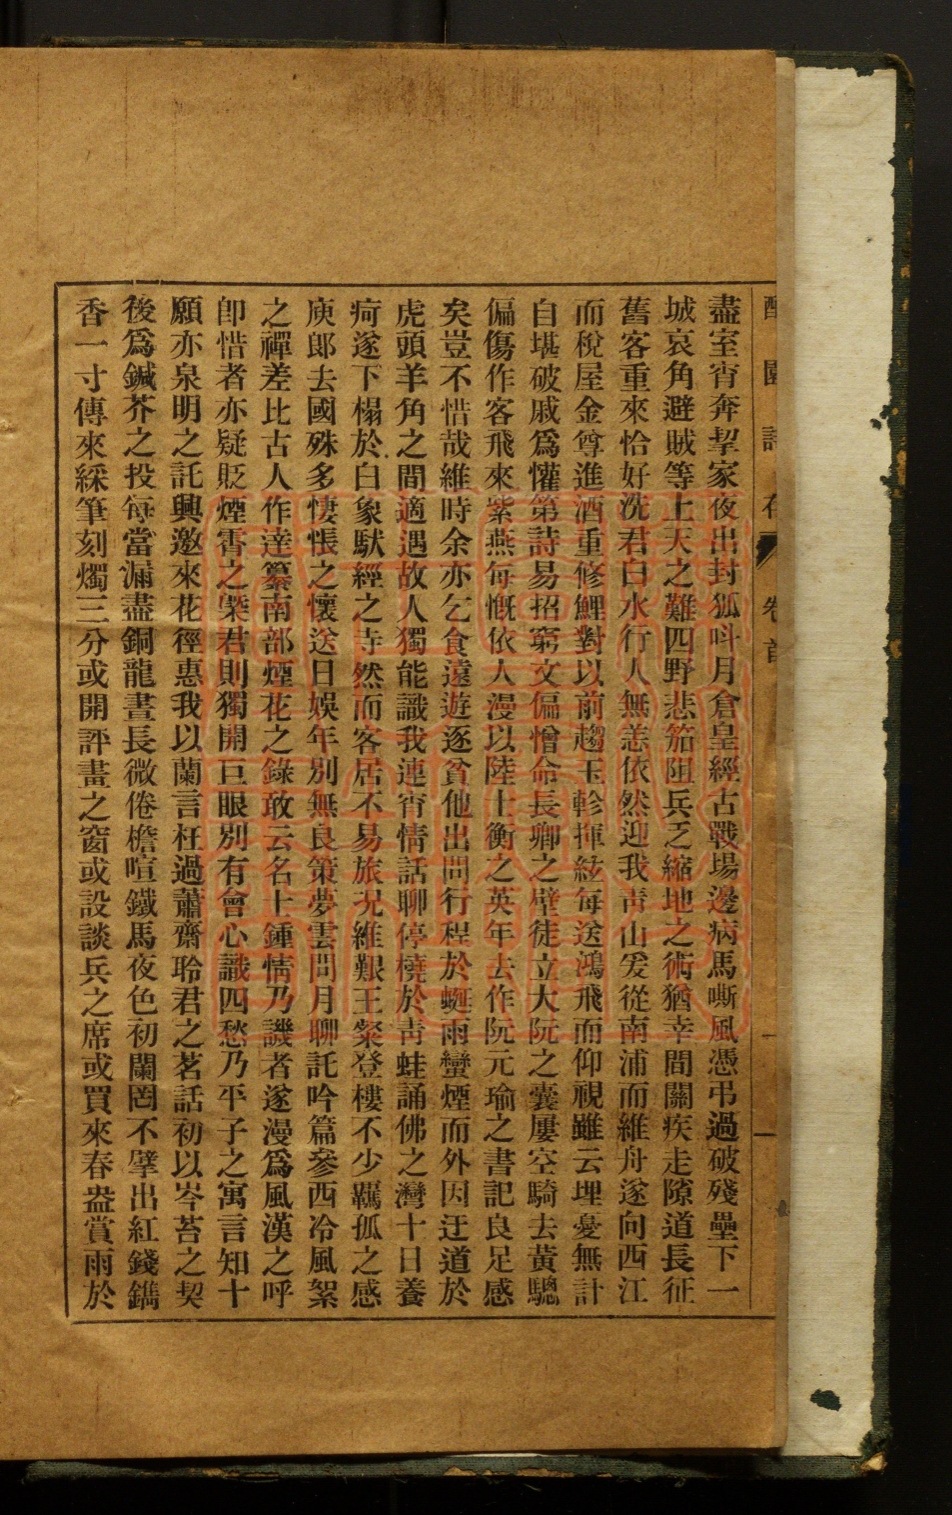 園詩存 卷首 一
盡室宵奔挈家夜出封狐呌月倉皇經古戰場邊病馬嘶風憑弔過破殘壘下一
城哀角避賊等上天之難四野悲笳阻兵乏縮地之術猶幸間關疾走隙道長征
舊客重來恰好洗君白水行人無恙依然迎我靑山爰從南浦而維舟遂向西江
而稅屋金尊進酒重修鯉對以前趨玉軫揮絃每送鴻飛而仰視雖云埋憂無計
自堪破戚爲懽第詩易招窮文偏憎命長卿之壁徒立大阮之囊屢空騎去黃驄
偏傷作客飛來紫燕每慨依人漫以陸士衡之英年去作阮元瑜之書記良足感
矣豈不惜哉維時余亦乞食遠遊逐貧他出問行程於蜒雨蠻煙而外因迂道於
虎頭羊角之間適遇故人獨能識我連宵情話聊停橈於靑蛙誦佛之灣十日養
疴遂下榻於白象馱經之寺然而客居不易旅况維艱王粲登樓不少羈孤之感
庾郞去國殊多悽悵之懷送日娛年別無良策夢雲問月聊託吟篇參西冷風絮
之禪差比古人作達纂南部煙花之錄敢云名士鍾情乃譏者遂漫爲風漢之呼
卽惜者亦疑貶煙霄之槩君則獨開巨眼別有會心識四愁乃平子之寓言知十
願亦泉明之託興邀來花徑惠我以蘭言枉過蕭齋聆君之茗話初以岑苔之契
後爲鍼芥之投每當漏盡銅龍晝長微倦檐喧鐵馬夜色初闌罔不擘出紅錢鐫
香一寸傳來綵筆刻燭三分或開評畫之窗或設談兵之席或買來春盎賞雨於